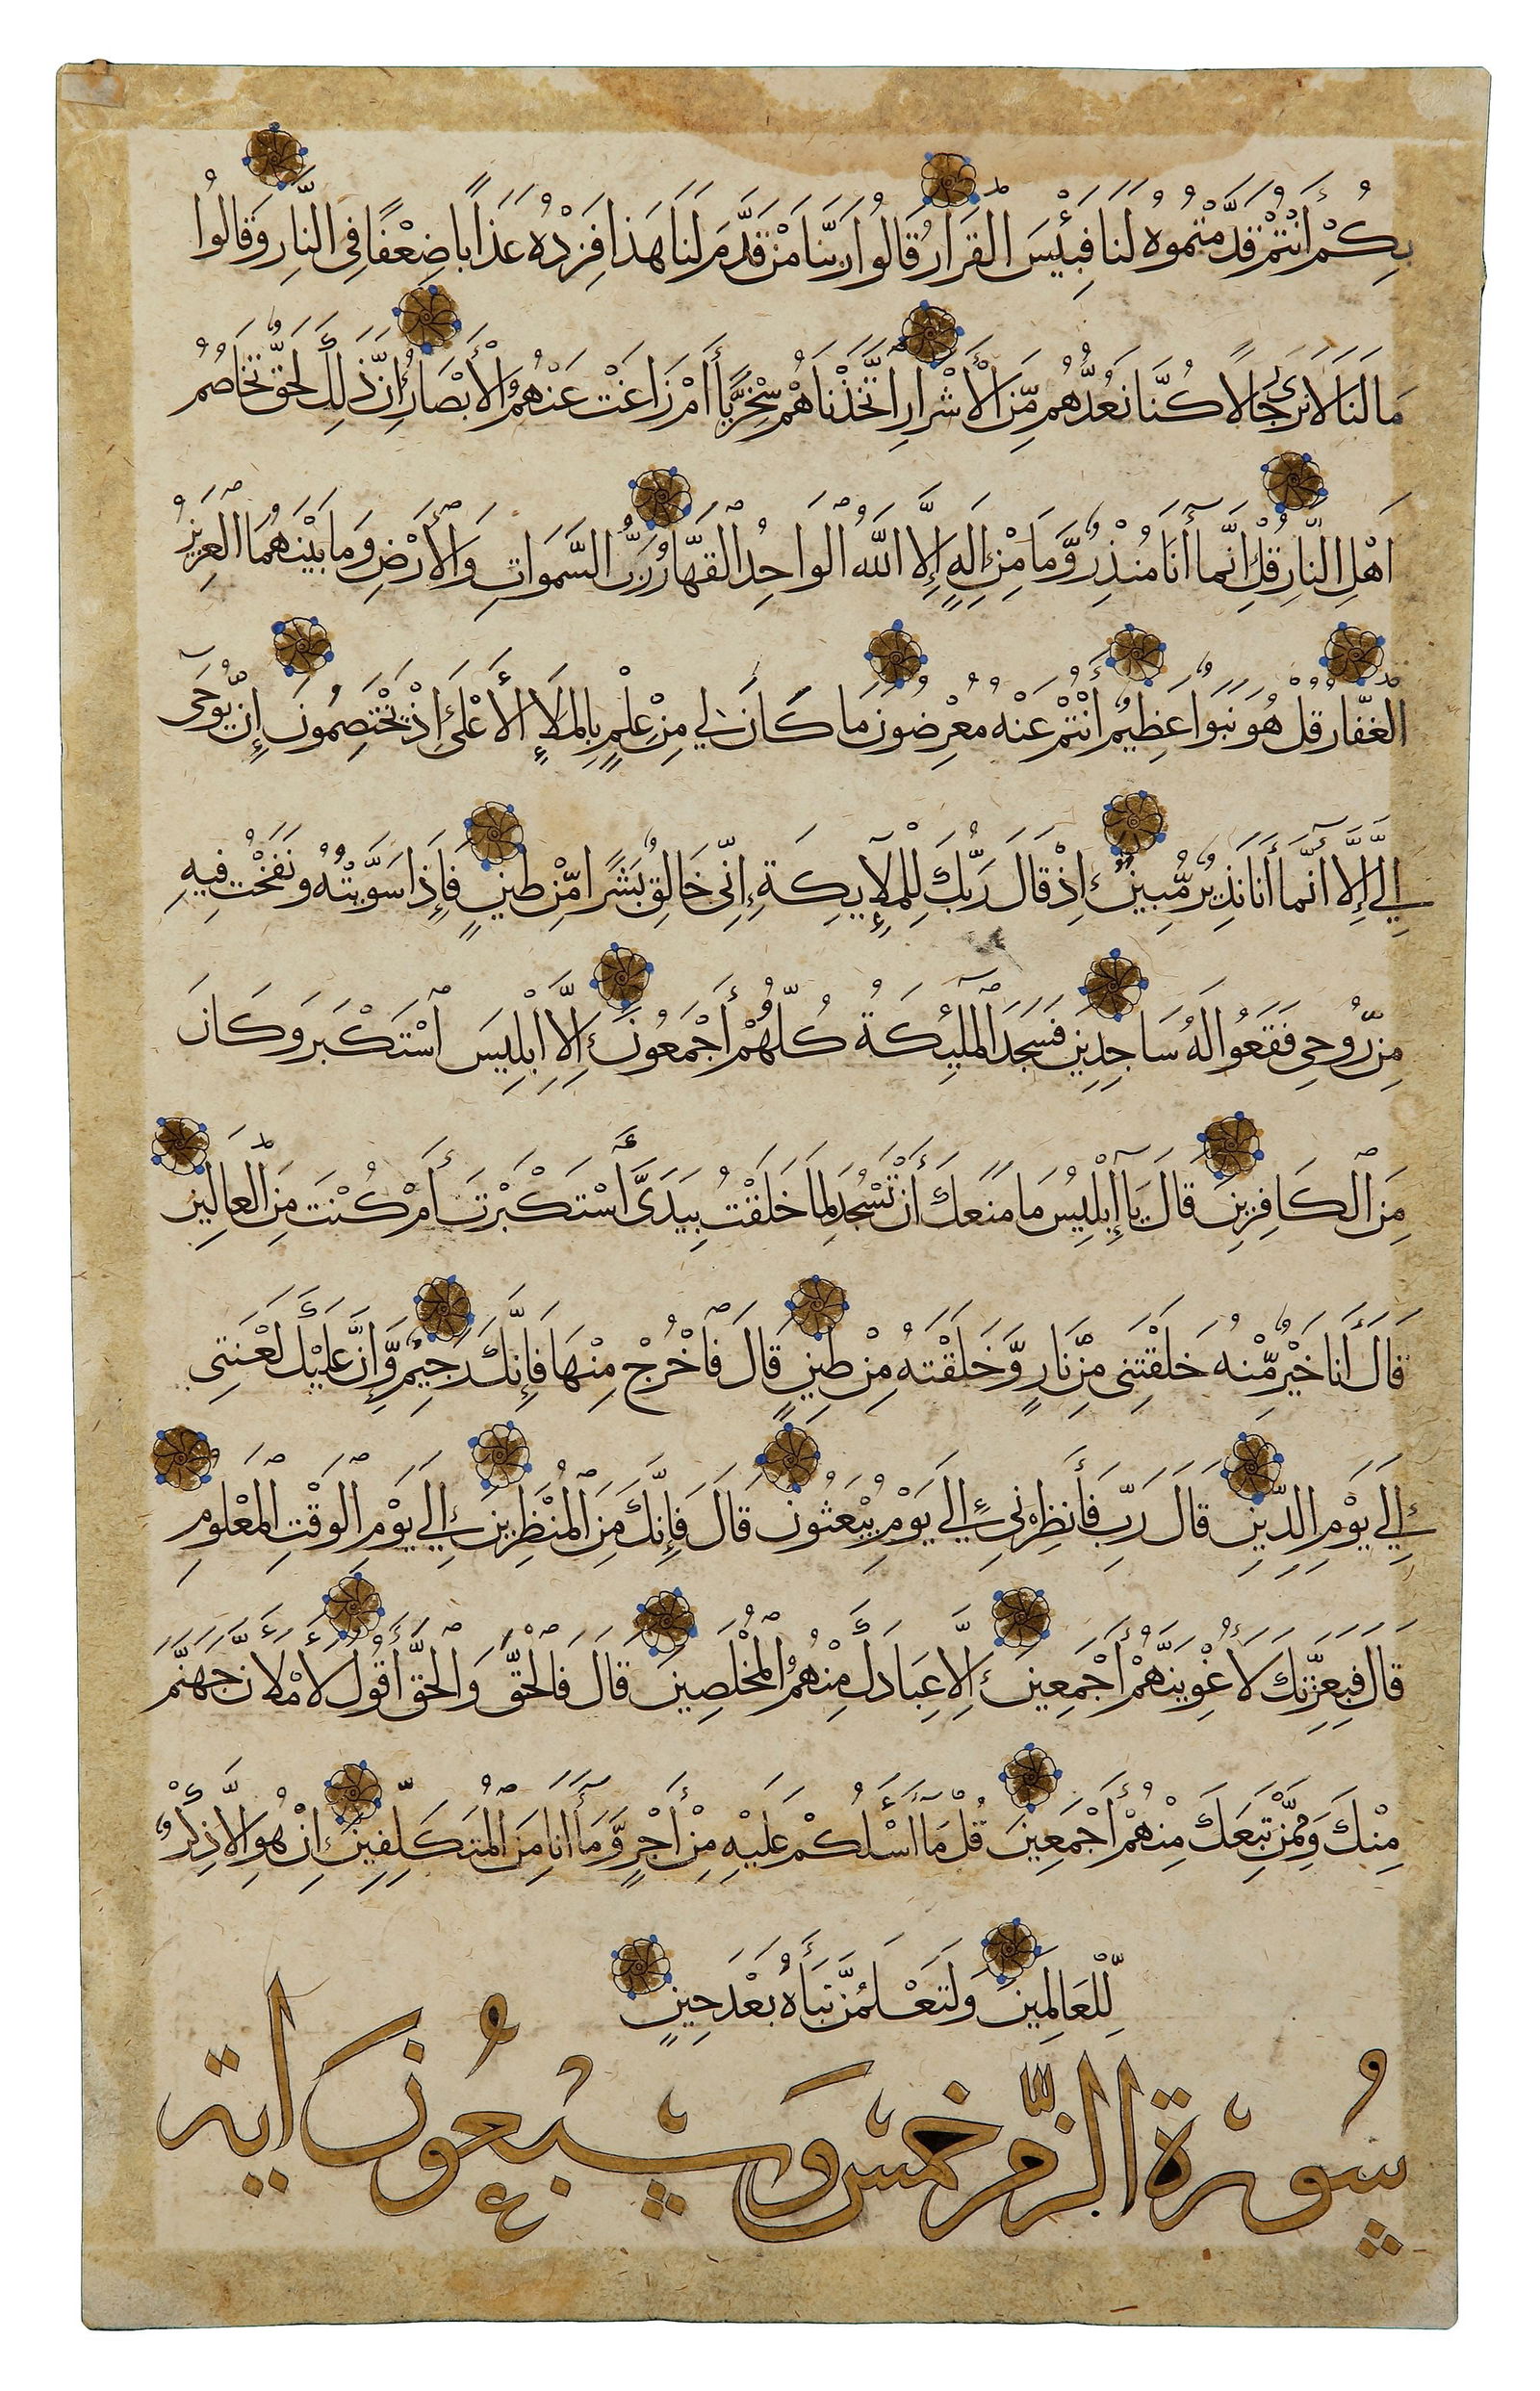 بِكُمْ أَنْتُمْ قَدَّمْتُمُوهُ لَنَا فَبِئْسَ الْقَرَارُ قَالُوا رَبَّنَا مَنْ قَدَّمَ لَنَا هَذَا فَزِدْهُ عَذَابًا ضِعْفًا فِي النَّارِ وَقَالُوا
مَا لَنَا لَا نَرَى رِجَالًا كُنَّا نَعُدُّهُمْ مِّنَ الْأَشْرَارِ أَتَّخَذْنَاهُمْ سِخْرِيًّا أَمْ زَاغَتْ عَنْهُمُ الْأَبْصَارُ إِنَّ ذَلِكَ لَحَقٌّ تَخَاصُمُ
أَهْلِ النَّارِ قُلْ إِنَّمَا أَنَا مُنْذِرٌ وَّمَا مِنْ إِلَهٍ إِلَّا اللَّهُ الْوَاحِدُ الْقَهَّارُ رَبُّ السَّمَوَاتِ وَالْأَرْضِ وَمَا بَيْنَهُمَا الْعَزِيزُ
الْغَفَّارُ قُلْ هُوَ نَبَؤٌا عَظِيمٌ أَنْتُمْ عَنْهُ مُعْرِضُونَ مَا كَانَ لِي مِنْ عِلْمٍ بِالْمَلَإِ الْأَعْلَى إِذْ يَخْتَصِمُونَ إِنْ يُّوحَى
إِلَيَّ إِلَّا أَنَّمَا أَنَا نَذِيرٌ مُّبِينٌ إِذْ قَالَ رَبُّكَ لِلْمَلَآئِكَةِ إِنِّي خَالِقٌ بَشَرًا مِّنْ طِينٍ فَإِذَا سَوَّيْتُهُ وَنَفَخْتُ فِيهِ
مِنْ رُّوحِي فَقَعُوا لَهُ سَاجِدِينَ فَسَجَدَ الْمَلٰئِكَةُ كُلُّهُمْ أَجْمَعُونَ إِلَّا إِبْلِيسَ اسْتَكْبَرَ وَكَانَ
مِنَ الْكَافِرِينَ قَالَ يَا إِبْلِيسُ مَا مَنَعَكَ أَنْ تَسْجُدَ لِمَا خَلَقْتُ بِيَدَيَّ أَسْتَكْبَرْتَ أَمْ كُنْتَ مِنَ الْعَالِينَ
قَالَ أَنَا خَيْرٌ مِّنْهُ خَلَقْتَنِي مِنْ نَّارٍ وَّخَلَقْتَهُ مِنْ طِينٍ قَالَ فَاخْرُجْ مِنْهَا فَإِنَّكَ رَجِيمٌ وَّإِنَّ عَلَيْكَ لَعْنَتِي
إِلَى يَوْمِ الدِّينِ قَالَ رَبِّ فَأَنظِرْنِي إِلَى يَوْمِ يُبْعَثُونَ قَالَ فَإِنَّكَ مِنَ الْمُنْظَرِينَ إِلَى يَوْمِ الْوَقْتِ الْمَعْلُومِ
قَالَ فَبِعِزَّتِكَ لَأُغْوِيَنَّهُمْ أَجْمَعِينَ إِلَّا عِبَادَكَ مِنْهُمُ الْمُخْلَصِينَ قَالَ فَالْحَقُّ وَالْحَقَّ أَقُولُ لَأَمْلَأَنَّ جَهَنَّمَ
مِنْكَ وَمِمَّنْ تَبِعَكَ مِنْهُمْ أَجْمَعِينَ قُلْ مَا أَسْأَلُكُمْ عَلَيْهِ مِنْ أَجْرٍ وَّمَا أَنَا مِنَ الْمُتَكَلِّفِينَ إِنْ هُوَ إِلَّا ذِكْرٌ
لِّلْعَالَمِينَ وَلَتَعْلَمُنَّ نَبَأَهُ بَعْدَ حِينٍ
سُورَة الزّمر خمس وسبْعُون اية